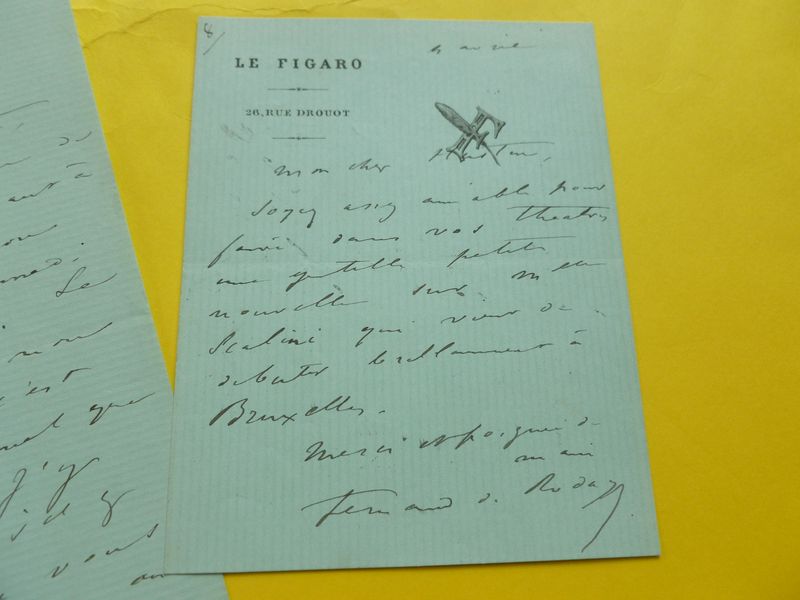 8/
4 avril
LE FIGARO
26, RUE DROUOT
F
mon cher
Soyez assez aimable pour
faire dans vos theatres
une gentille petite
nouvelle sur
Scalini qui vient de
debuter brillamment à
Bruxelles.
Merci et poignée de
main
Fernand de Rodays
de
ant à
ou
Le
nous
c'est
que
j'y
vous